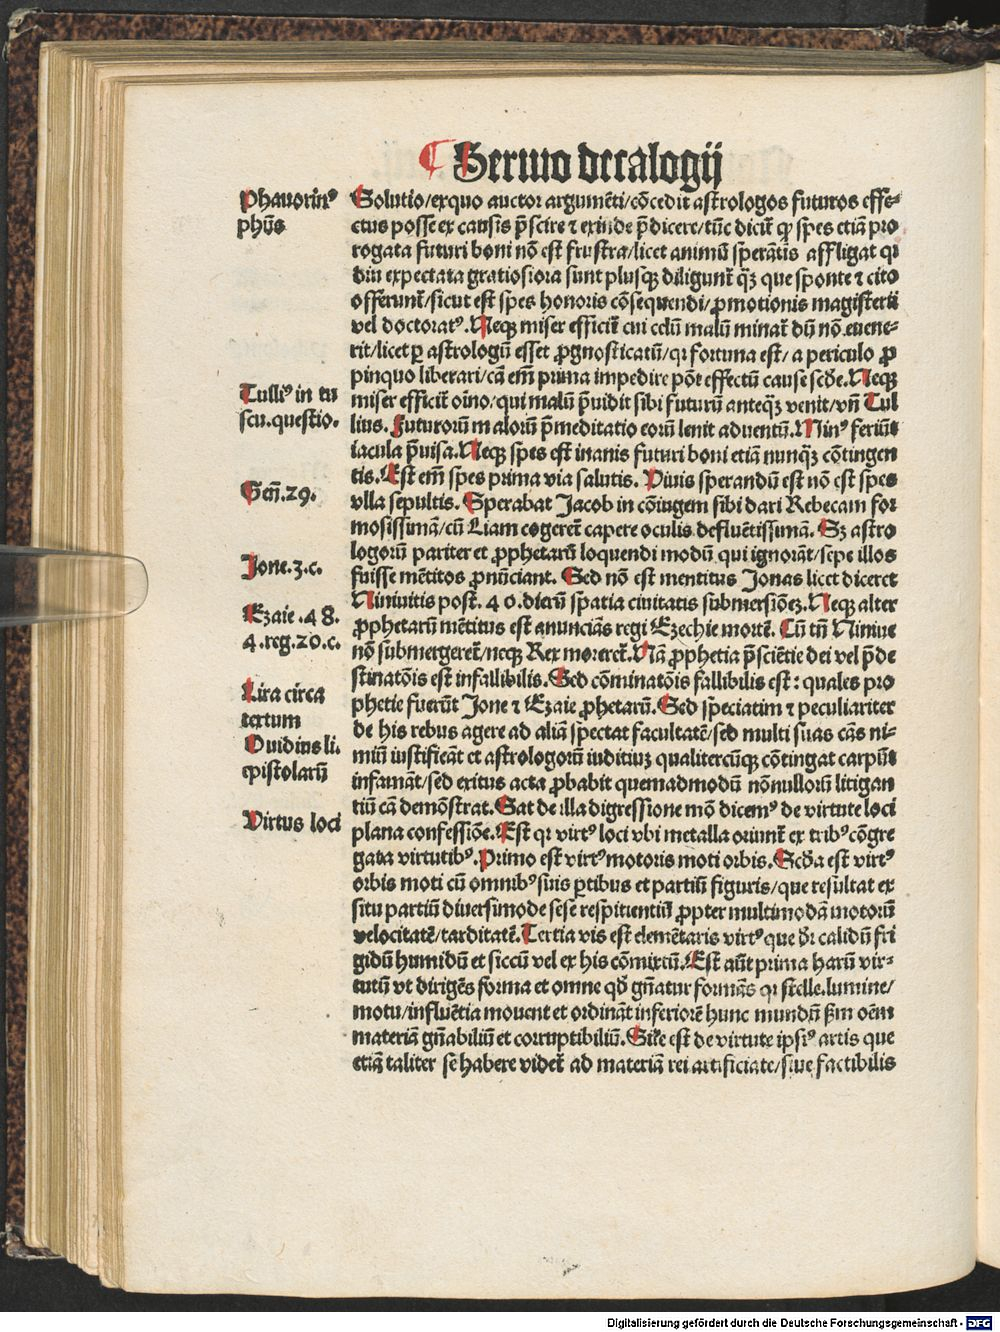 ¶ Sermo decalogij
Phauorinꝰ
phūs
Solutio/exquo auctor argumēti/cōcedit astrologos futuros effe-
ctus posse ex causis p̄scire ⁊ exinde p̄dicere/tūc dicit̄ ꝙ spes etiā pro
rogata futuri boni nō est frustra/licet animū sperātis affligat qꝛ
diu expectata gratiosiora sunt plusqꝫ diligunt̄ qꝫ̄ que sponte ⁊ cito
offerunt̄/sicut est spes honoris cōsequendi/ꝓmotionis magisterij
vel doctoratꝰ. Neqꝫ miser efficit̄ cui celū malū minat̄ dū nō euene-
rit/licet ꝑ astrologū esset ꝓgnosticatū/qꝛ fortuna est/a periculo ꝓ
pinquo liberari/cā em̄ prima impedire pōt effectū cause scd̄e. Neqꝫ
miser efficit̄ oīno/qui malū p̄uidit sibi futurū anteqꝫ̄ venit/vn̄ Tul
lius. Futurorū malorū p̄meditatio eorū lenit aduentū. Minꝰ feriūt
iacula p̄uisa. Neqꝫ spes est inanis futuri boni etiā nunqꝫ̄ cōtingen
tis. Est em̄ spes prima via salutis. Viuis sperandū est nō est spes
vlla sepultis. Sperabat Jacob in cōiugem sibi dari Rebecam for
mosissimā/cū Liam cogeret̄ capere oculis defluētissimā. Sꝫ astro
logorū pariter et ꝓphetarū loquendi modū qui ignorāt/sepe illos
fuisse mētitos ꝓnūciant. Sed nō est mentitus Jonas licet diceret
Niniuitis post .40. dierū spatia ciuitatis submersiōeꝫ. Neqꝫ alter
ꝓphetarū mētitus est anunciās regi Ezechie mortē. Cū tn̄ Niniue
nō submergeret̄/neqꝫ Rex moreret̄. Nā ꝓphetia p̄sciētie dei vel p̄de
stinatōis est infallibilis. Sed cōminatōis fallibilis est: quales pro
phetie fuerūt Jone ⁊ Ezaie ꝓphetarū. Sed speciatim ⁊ peculiariter
de his rebus agere ad aliā spectat facultatē/sed multi suas cās ni-
miū iustificāt et astrologorū iuditiuꝫ qualitercūqꝫ cōtingat carpūt
infamāt/sed exitus acta ꝓbabit quemadmodū nōnullorū litigan
tiū cā demōstrat. Sat de illa digressione mō dicemꝰ de virtute loci
plana confessiōe. Est qꝛ virtꝰ loci vbi metalla oriunt̄ ex tribꝰ cōgre
gata virtutibꝰ. Primo est virtꝰ motoris moti orbis. Scd̄a est virtꝰ
orbis moti cū omnibꝰ suis ꝑtibus et partiū figuris/que resultat ex
situ partiū diuersimode sese respitientiū ꝓpter multimodā motorū
velocitatē/tarditatē. Tertia vis est elemētaris virtꝰ que dr̄ calidū fri
gidū humidū et siccū vel ex his cōmixtū. Est aūt prima harū vir-
tutū vt dirigēs forma et omne qd̄ gn̄atur formās qꝛ stelle lumine/
motu/influētia mouent et ordināt inferiorē hunc mundū ẜm oēm
materiā gn̄abiliū et corruptibiliū. Sil̄e est de virtute ipsiꝰ artis que
etiā taliter se habere videt̄ ad materiā rei artificiate/siue factibilis
Tulliꝰ in tu
scu.questio.
Gen̄.29.
Jone.3.c.
Ezaie.48.
4.reg.20.c.
Lira circa
tertum
Ouidius li.
epistolarū
Virtus loci
Digitalisierung gefördert durch die Deutsche Forschungsgemeinschaft - DFG